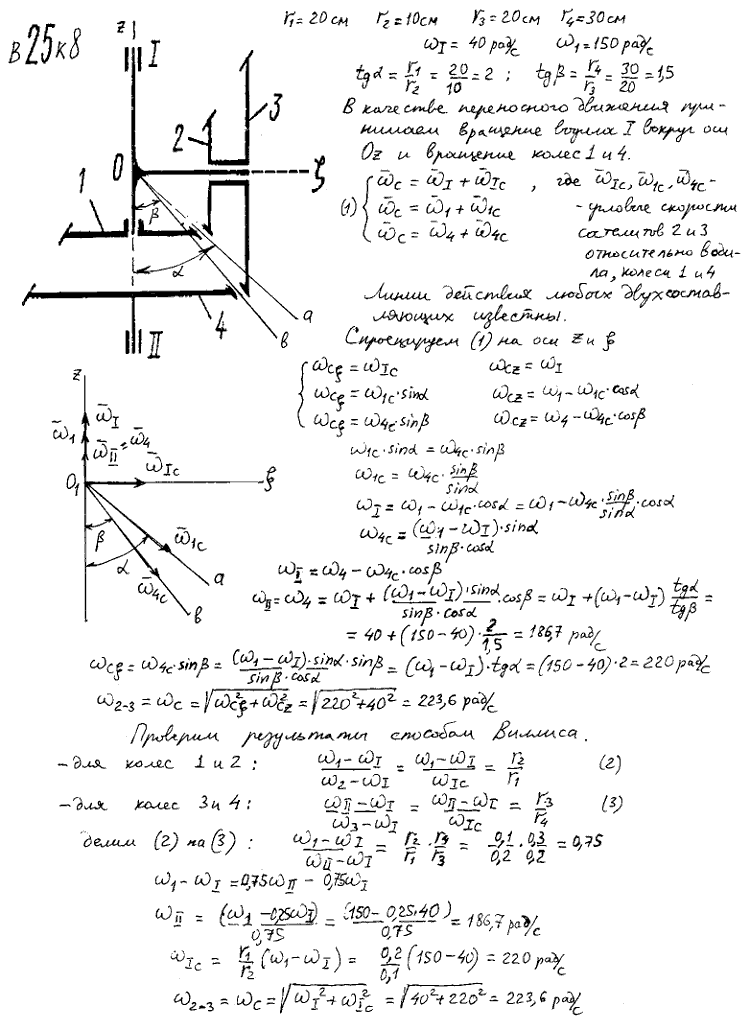 В 25 к 8
r₁ = 20 см r₂ = 10 см r₃ = 20 см r₄ = 30 см
ω_I = 40 рад/с ω₁ = 150 рад/с
tgα = r₁/r₂ = 20/10 = 2 ; tgβ = r₄/r₃ = 30/20 = 1,5
В качестве переносного движения при-
нимаем вращение водила I вокруг оси
Oz и вращение колес 1 и 4.
(1) { ω̄_C = ω̄_I + ω̄_IC , где ω̄_IC, ω̄_1C, ω̄_4C -
ω̄_C = ω̄_1 + ω̄_1C - угловые скорости
ω̄_C = ω̄_4 + ω̄_4C сателитов 2 и 3
относительно води-
ла, колеса 1 и 4
Линии действия любых двух состав-
ляющих известны.
Спроецируем (1) на оси z и ξ
z
I
3
2
O
ξ
1
β
α
4
a
в
II
{ ω_Cξ = ω_IC ω_Cz = ω_I
ω_Cξ = ω_1C·sinα ω_Cz = ω_1 - ω_1C·cosα
ω_Cξ = ω_4C·sinβ ω_Cz = ω_4 - ω_4C·cosβ
z
ω̄_I
ω̄_1
ω̄_II = ω̄_4
ω̄_IC
O₁
ξ
β
α
ω̄_1C
ω̄_4C
a
в
ω_1C·sinα = ω_4C·sinβ
ω_1C = ω_4C·sinβ/sinα
ω_I = ω_1 - ω_1C·cosα = ω_1 - ω_4C·sinβ/sinα·cosα
ω_4C = (ω_1 - ω_I)·sinα/sinβ·cosα
ω_II = ω_4 - ω_4C·cosβ
ω_II = ω_4 = ω_I + (ω_1 - ω_I)·sinα/sinβ·cosα·cosβ = ω_I + (ω_1 - ω_I) tgα/tgβ =
= 40 + (150 - 40)·2/1,5 = 186,7 рад/с
ω_Cξ = ω_4C·sinβ = (ω_1 - ω_I)·sinα/sinβ·cosα·sinβ = (ω_1 - ω_I)·tgα = (150 - 40)·2 = 220 рад/с
ω_2-3 = ω_C = √(ω²_Cξ + ω²_Cz) = √(220² + 40²) = 223,6 рад/с
Проверим результаты способом Виллиса.
- для колес 1 и 2 : (ω_1 - ω_I)/(ω_2 - ω_I) = (ω_1 - ω_I)/ω_IC = r₂/r₁ (2)
- для колес 3 и 4 : (ω_II - ω_I)/(ω_3 - ω_I) = (ω_II - ω_I)/ω_IC = r₃/r₄ (3)
делим (2) на (3) : (ω_1 - ω_I)/(ω_II - ω_I) = r₂/r₁·r₄/r₃ = 0,1/0,2·0,3/0,2 = 0,75
ω_1 - ω_I = 0,75ω_II - 0,75ω_I
ω_II = (ω_1 - 0,25ω_I)/0,75 = (150 - 0,25·40)/0,75 = 186,7 рад/с
ω_IC = r₁/r₂ (ω_1 - ω_I) = 0,2/0,1 (150 - 40) = 220 рад/с
ω_2-3 = ω_C = √(ω_I² + ω²_IC) = √(40² + 220²) = 223,6 рад/с